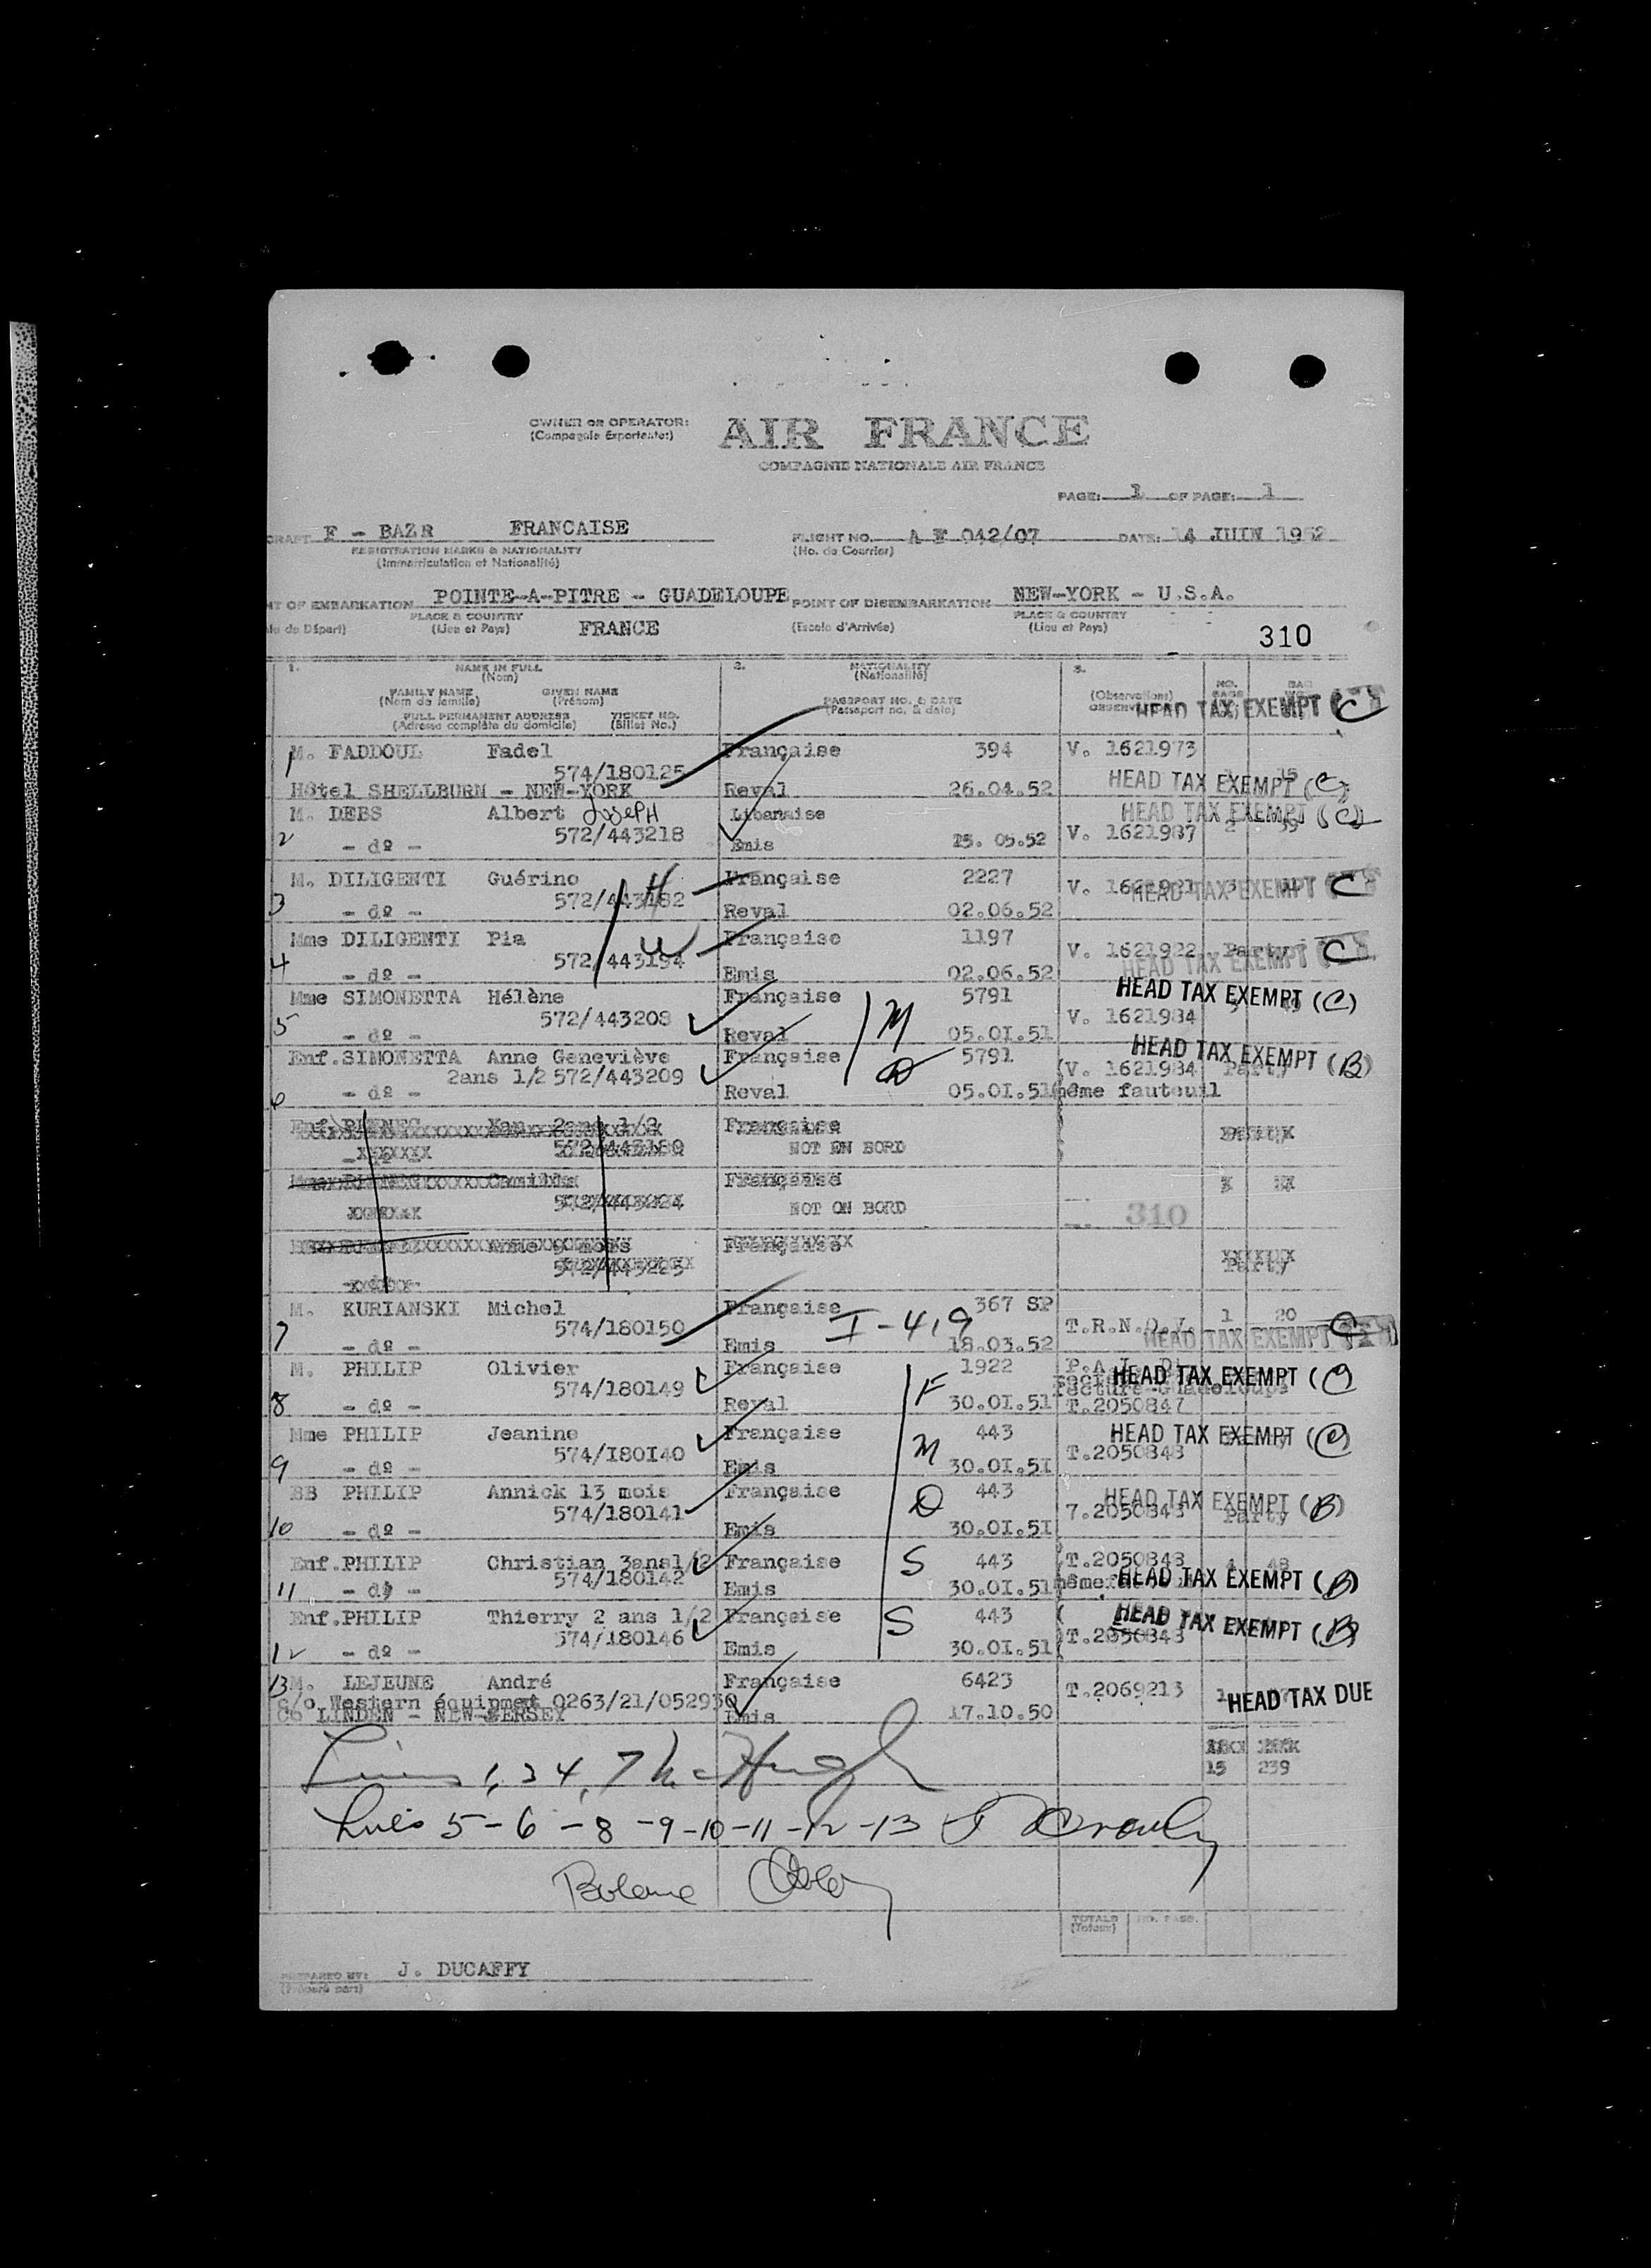 OWNER OR OPERATOR: AIR FRANCE
(Compagnie Exportente:)
COMPAGNIE NATIONALE AIR FRANCE
PAGE: 1 OF PAGE: 1
CRAFT F - BAZR FRANCAISE FLIGHT NO. A F 042/07 DATE: 14 JUIN 1952
REGISTRATION MARKS & NATIONALITY (No. de Courrier)
(Immatriculation et Nationalité)
NT OF EMBARKATION POINTE-A-PITRE - GUADELOUPE POINT OF DISEMBARKATION NEW-YORK - U.S.A.
PLACE & COUNTRY PLACE & COUNTRY
le de Départ) (Lieu et Pays) FRANCE (Escale d'Arrivée) (Lieu et Pays)
310
1. NAME IN FULL 2. NATIONALITY 3.
(Nom) (Nationalité) NO. BAG
FAMILY NAME GIVEN NAME PASSPORT NO. & DATE (Observations)
(Nom de famille) (Prénom) (Passeport no. & date)
FULL PERMANENT ADDRESS TICKET NO. HEAD TAX EXEMPT (C
(Adresse complète du domicile) (Billet No.)
M. FADDOUL Fadel Française 394 V. 1621973
1 574/180125 15
Hôtel SHELLBURN - NEW-YORK Reval 26.04.52 HEAD TAX EXEMPT (C)
M. DEBS Albert Joseph Libanaise HEAD TAX EXEMPT (C)
2 - dº - 572/443218 Emis 15. 05.52 V. 1621987 2 39
M. DILIGENTI Guérino H Française 2227
572/443182 V. HEAD TAX EXEMPT C
3 - dº - Reval 02.06.52
Mme DILIGENTI Pia W Française 1197
4 572/443194 V. 1621922 Party C
- dº - Emis 02.06.52 HEAD TAX EXEMPT
Mme SIMONETTA Hélène Française 5791 HEAD TAX EXEMPT (C)
5 572/443208 M V. 1621984
- dº - Reval 05.01.51
Enf. SIMONETTA Anne Geneviève Française 5791 HEAD TAX EXEMPT (B)
2ans 1/2 572/443209 D (V. 1621984 Party
6 - dº - Reval 05.01.51 même fauteuil
Enf. 2ans 1/2 Française
NOT ON BORD
Française
NOT ON BORD 310
Française
Party
M. KURIANSKI Michel Française 367 SP 1 20
7 574/180150 I-419 T.R.N.O.V.
- dº - Emis 18.03.52 HEAD TAX EXEMPT C
M. PHILIP Olivier Française 1922 HEAD TAX EXEMPT (C)
574/180149 F
8 - dº - Reval 30.01.51 T.2050847
Mme PHILIP Jeanine Française 443 HEAD TAX EXEMPT (C)
574/180140 M T.2050848
9 - dº - Emis 30.01.51
BB PHILIP Annick 13 mois Française 443 HEAD TAX EXEMPT (B)
574/180141 D 7.2050848 Party
10 - dº - Emis 30.01.51
Enf. PHILIP Christian 3ans1/2 Française S 443 T.2050848 48
11 - dº - 574/180142 Emis 30.01.51 HEAD TAX EXEMPT (B)
Enf. PHILIP Thierry 2 ans 1/2 Française S 443 ( HEAD TAX EXEMPT (B)
574/180146 T.2050848
12 - dº - Emis 30.01.51
13 M. LEJEUNE André Française 6423
c/o Western équipmet 0263/21/052930 T.2069213 HEAD TAX DUE
LINDEN - NEW-JERSEY Emis 17.10.50
15 239
Lines 1, 3 4, 7 McHugh
Lines 5-6-8-9-10-11-12-13
TOTALS NO. PASS.
(Totaux)
PREPARED BY: J. DUCAFFY
(Préparé par:)